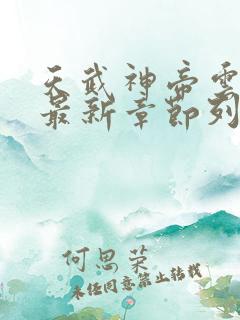 天武神帝雲
最新章節列
何思荣
未经同意禁止转载